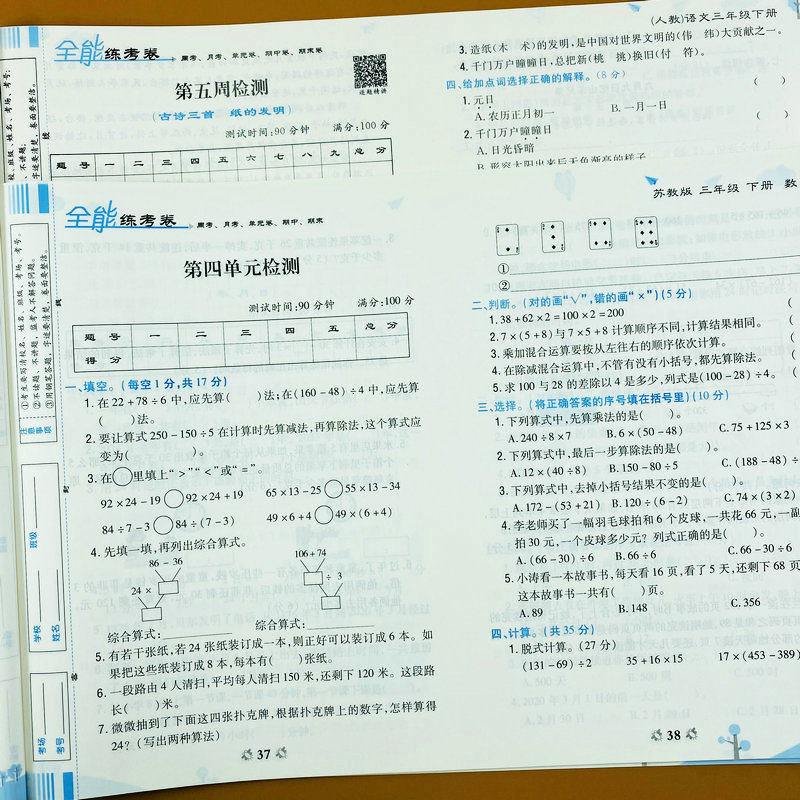 全能练考卷 周考、月考、单元卷、期中卷、期末卷
第五周检测
(古诗三首 纸的发明)
逐题精讲
测试时间:90分钟 满分:100分
题号 一 二 三 四 五 六 七 八 九 总分
(人教)语文三年级下册
3.造纸(木 术)的发明,是中国对世界文明的(伟 纬)大贡献之一。
4.千门万户曈曈日,总把新(桃 挑)换旧(付 符)。
四、给加点词选择正确的解释。(8分)
1.元日 ( )
A.农历正月初一 B.一月一日
2.千门万户曈曈日 ( )
A.日光昏暗
B.形容太阳出来后天色渐亮的样子
全能练考卷 周考、月考、单元卷、期中、期末
第四单元检测
测试时间:90分钟 满分:100分
题号 一 二 三 四 五 总分
得分
一、填空。(每空1分,共17分)
1.在22+78÷6中,应先算( )法;在(160-48)÷4中,应先算
( )法。
2.要让算式250-150÷5在计算时先算减法,再算除法,这个算式应
变为( )。
3.在○里填上“>”“<”或“=”。
92×24-19○92×24+19 65×13-25○55×13-34
84÷7-3○84÷(7-3) 49×6+4○49×(6+4)
4.先填一填,再列出综合算式。
86-36 106+74
24× ÷3
综合算式: 综合算式:
5.有若干张纸,若24张纸装订成一本,则正好可以装订成6本。如
果把这些纸装订成8本,每本有( )张纸。
6.一段路由4人清扫,平均每人清扫150米,还剩下120米。这段路
长( )米。
7.微微抽到了下面这四张扑克牌,根据扑克牌上的数字,怎样算得
24?(写出两种算法)
37
苏教版 三年级 下册 数
①
②
二、判断。(对的画“√”,错的画“×”)(5分)
1.38+62×2=100×2=200 (
2.7×(5+8)与7×5+8计算顺序不同,计算结果相同。 (
3.乘加混合运算要按从左往右的顺序依次计算。 (
4.在除减混合运算中,不管有没有小括号,都先算除法。 (
5.求100与28的差除以4是多少,列式是(100-28)÷4。 (
三、选择。(将正确答案的序号填在括号里)(10分)
1.下列算式中,先算乘法的是( )。
A.240÷8×7 B.6×(50-48) C.75+125×3
2.下列算式中,最后一步算除法的是( )。
A.12×(40÷8) B.150-80÷5 C.(188-48)÷
3.下列算式中,去掉小括号结果不变的是( )。
A.172-(53+21) B.120÷(6-2) C.74×(3×2)
4.李老师买了一幅羽毛球拍和6个皮球,一共花66元,一副
拍30元,一个皮球多少元?列式正确的是( )。
A.(66-30)÷6 B.66÷6 C.66-30÷6
5.小涛看一本故事书,每天看16页,看了5天,还剩下68页
这本故事书一共有( )页。
A.89 B.148 C.356
四、计算。(共35分)
1.脱式计算。(27分)
(131-69)÷2 35+16×15 17×(453-389)
38
注意事项
①考生要写清校名、姓名、班级、考场、考号。
②不读题、不讲题,监考人不解答问题。
③用钢笔答题,字迹要清楚,卷面要整洁。
学校
班级
姓名
考场
考号